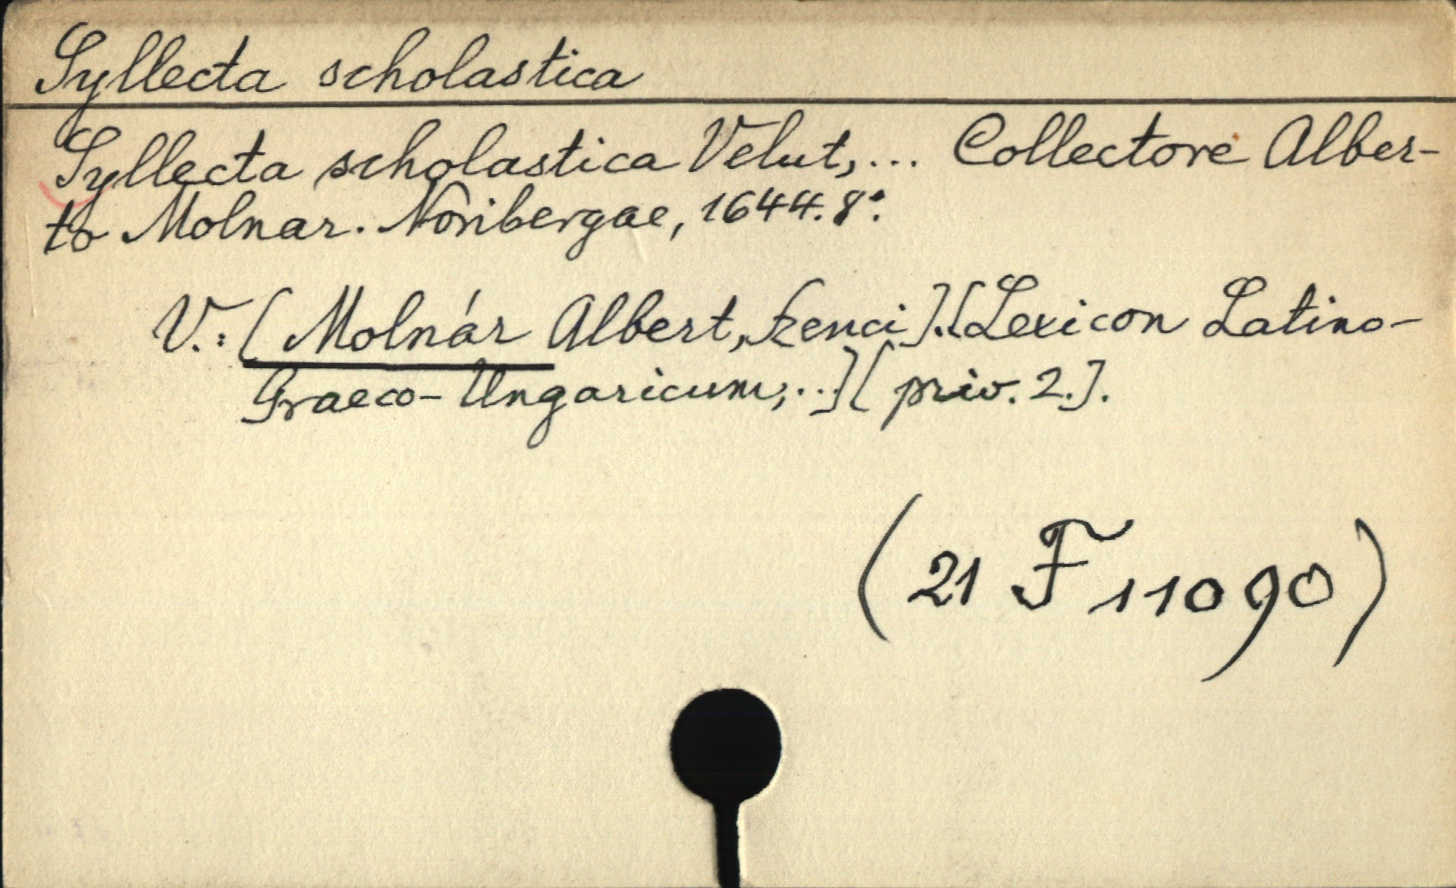 Syllecta scholastica
Syllecta scholastica Velut,... Collectore Alber-
to Molnar. Noribergae, 1644. 8°.
V.: [Molnár Albert, Szenci]. [Lexicon Latino-
Graeco-Ungaricum,...] [priv. 2.].
(21 F 11090)